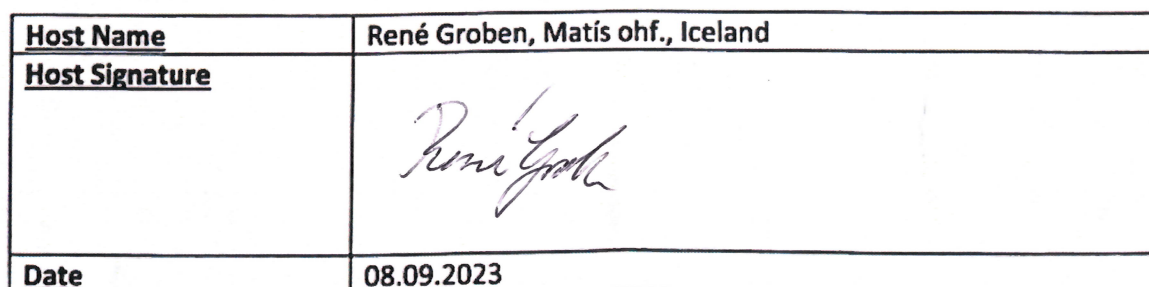 Host Name René Groben, Matís ohf., Iceland
Host Signature
René Groben
Date 08.09.2023